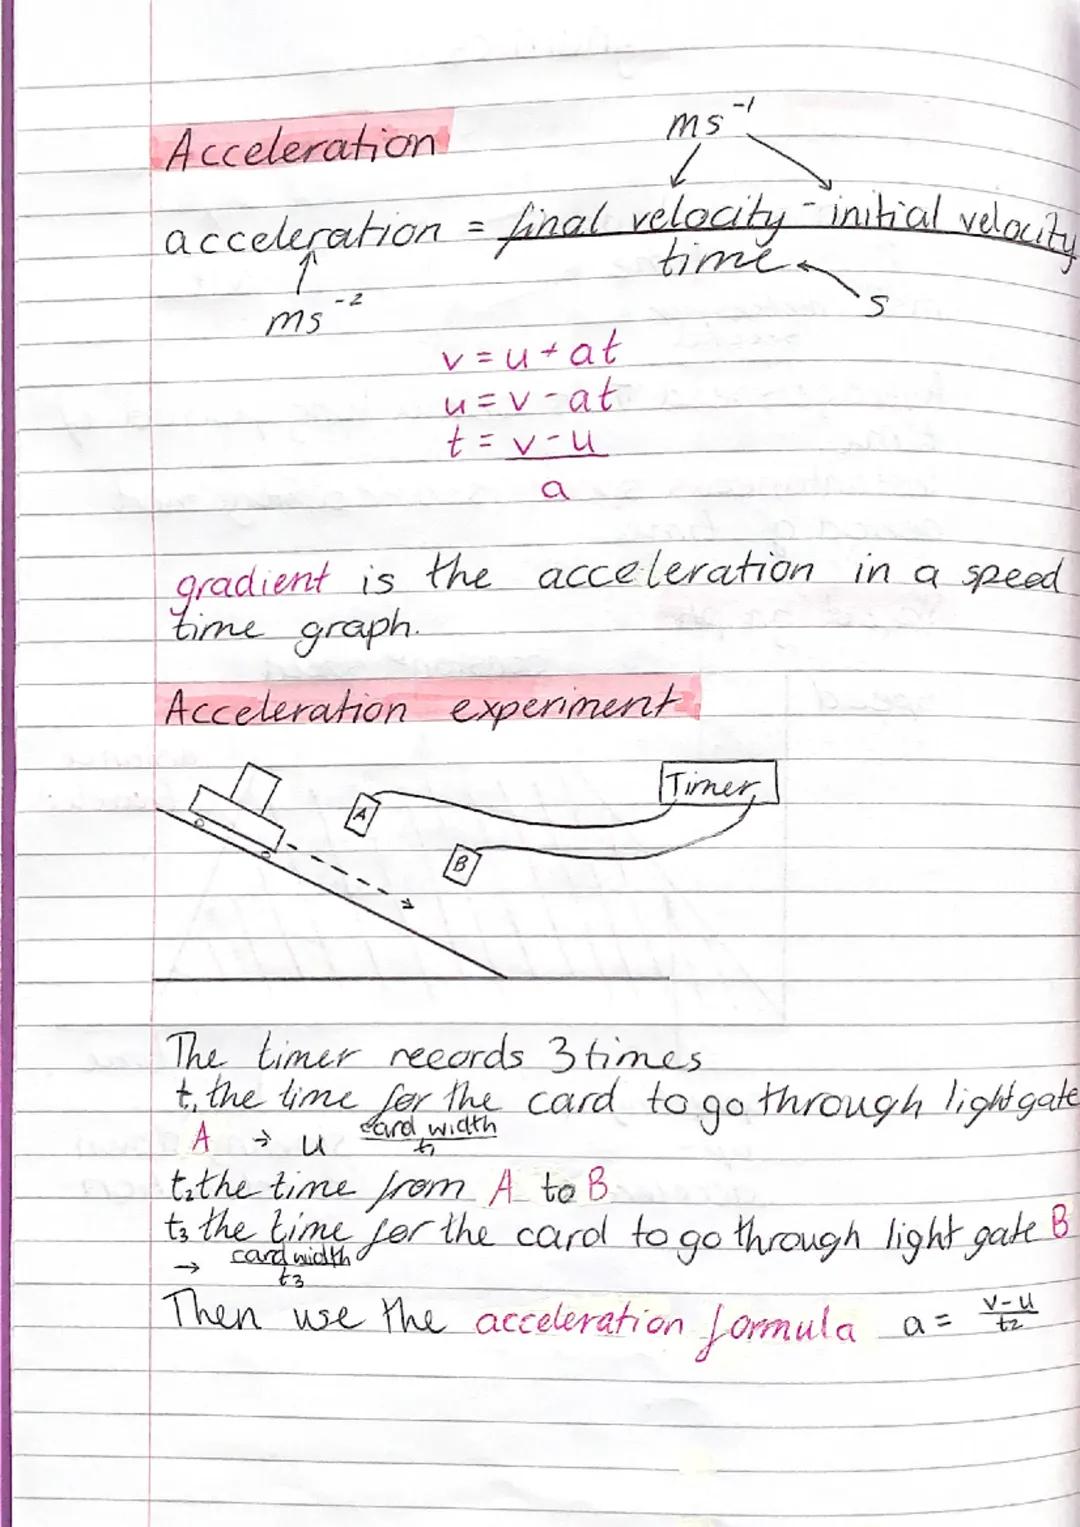 Acceleration
ms⁻¹
acceleration = final velocity - initial velocity
time
s
ms⁻²
v = u + at
u = v - at
t = v - u
a
gradient is the acceleration in a speed
time graph.
Acceleration experiment
Timer
A
B
The timer records 3 times
t₁ the time for the card to go through lightgate
A → u card width
t₁
t₂ the time from A to B
t₃ the time for the card to go through light gate B
→ card width
t₃
Then use the acceleration formula a = v-u
t₂